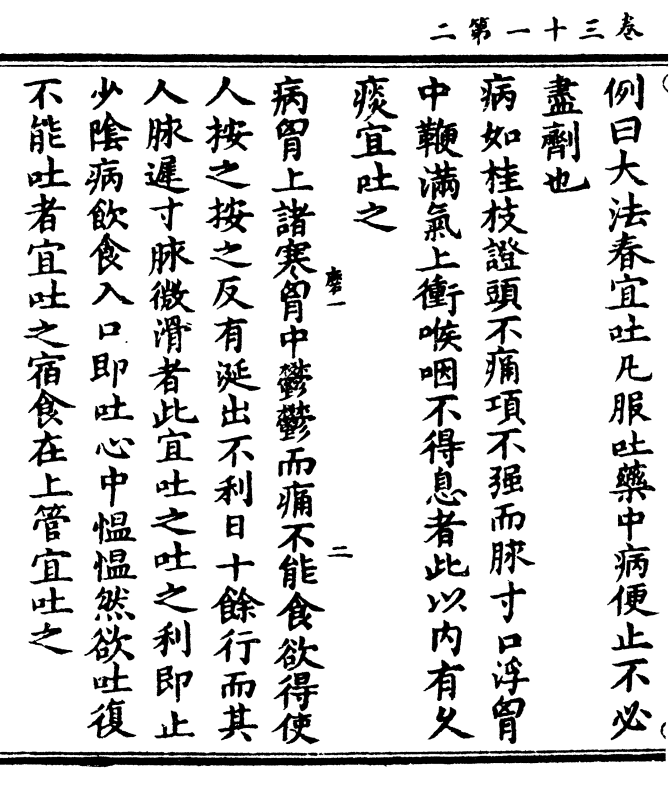 卷三十一第二
例曰大法春宜吐凡服吐藥中病便止不必
盡劑也
病如桂枝證頭不痛項不强而脉寸口浮胷
中鞭滿氣上衝喉咽不得息者此以内有久
痰宜吐之
磨一
二
病胷上諸寒胷中鬱鬱而痛不能食欲得使
人按之按之反有涎出不利日十餘行而其
人脉遲寸脉微滑者此宜吐之吐之利即止
少陰病飲食入口即吐心中愠愠然欲吐復
不能吐者宜吐之宿食在上管宜吐之